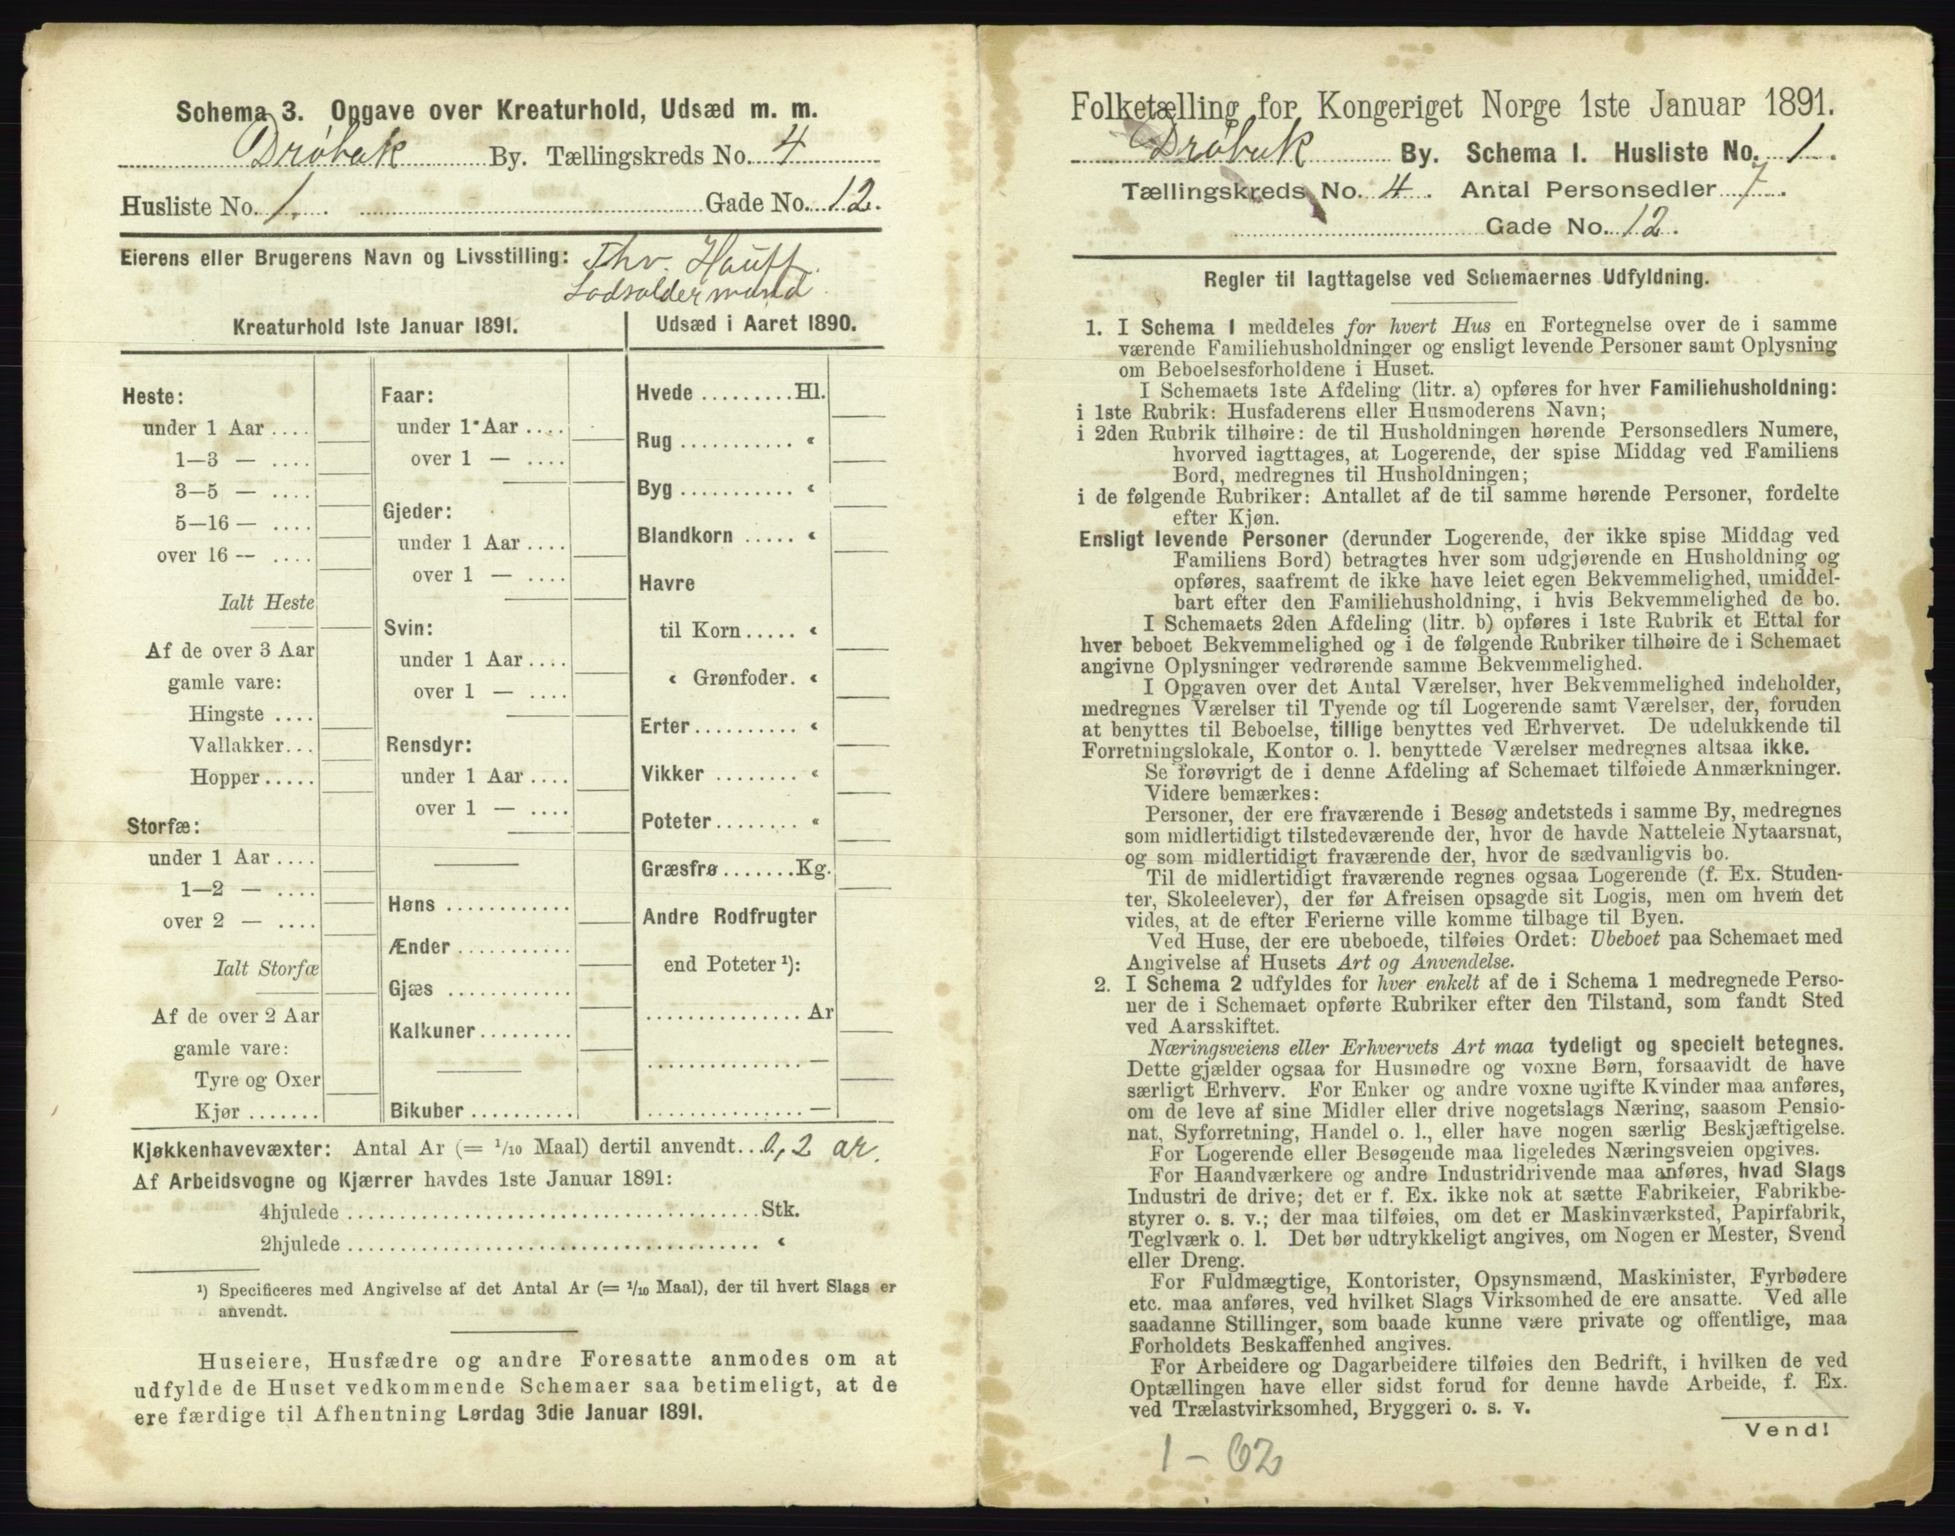 Schema 3. Opgave over Kreaturhold, Udsæd m. m.
Drøbak By. Tællingskreds No. 4
Husliste No. 1. Gade No. 12.
Eierens eller Brugerens Navn og Livsstilling: Thv. Hauff.
Lodsoldermand.
Kreaturhold 1ste Januar 1891.
Heste:
under 1 Aar ....
1—3 — ....
3—5 — ....
5—16 — ....
over 16 — ....
Ialt Heste
Af de over 3 Aar
gamle vare:
Hingste ....
Vallakker...
Hopper.....
Storfæ:
under 1 Aar....
1—2 — ....
over 2 — ....
Ialt Storfæ
Af de over 2 Aar
gamle vare:
Tyre og Oxer
Kjør.......
Faar:
under 1 Aar ....
over 1 — ....
Gjeder:
under 1 Aar ....
over 1 — ....
Svin:
under 1 Aar ....
over 1 — ....
Rensdyr:
under 1 Aar ....
over 1 — ....
Høns ............
Ænder ...........
Gjæs ............
Kalkuner.........
Bikuber ..........
Udsæd i Aaret 1890.
Hvede .........Hl.
Rug ........... «
Byg ........... «
Blandkorn ..... «
Havre
til Korn..... «
« Grønfoder. «
Erter.......... «
Vikker ........ «
Poteter........ «
Græsfrø .......Kg.
Andre Rodfrugter
end Poteter ¹):
............... Ar
............... —
............... —
Kjøkkenhavevæxter: Antal Ar (= 1/10 Maal) dertil anvendt... 0,2 ar.
Af Arbeidsvogne og Kjærrer havdes 1ste Januar 1891:
4hjulede ....................................... Stk.
2hjulede ....................................... «
¹) Specificeres med Angivelse af det Antal Ar (= 1/10 Maal), der til hvert Slags er
anvendt.
Huseiere, Husfædre og andre Foresatte anmodes om at
udfylde de Huset vedkommende Schemaer saa betimeligt, at de
ere færdige til Afhentning Lørdag 3die Januar 1891.
Folketælling for Kongeriget Norge 1ste Januar 1891.
Drøbak By. Schema 1. Husliste No. 1.
Tællingskreds No. 4. Antal Personsedler 7.
Gade No. 12.
Regler til Iagttagelse ved Schemaernes Udfyldning.
1. I Schema 1 meddeles for hvert Hus en Fortegnelse over de i samme
værende Familiehusholdninger og ensligt levende Personer samt Oplysning
om Beboelsesforholdene i Huset.
I Schemaets 1ste Afdeling (litr. a) opføres for hver Familiehusholdning:
i 1ste Rubrik: Husfaderens eller Husmoderens Navn;
i 2den Rubrik tilhøire: de til Husholdningen hørende Personsedlers Numere,
hvorved iagttages, at Logerende, der spise Middag ved Familiens
Bord, medregnes til Husholdningen;
i de følgende Rubriker: Antallet af de til samme hørende Personer, fordelte
efter Kjøn.
Ensligt levende Personer (derunder Logerende, der ikke spise Middag ved
Familiens Bord) betragtes hver som udgjørende en Husholdning og
opføres, saafremt de ikke have leiet egen Bekvemmelighed, umiddel-
bart efter den Familiehusholdning, i hvis Bekvemmelighed de bo.
I Schemaets 2den Afdeling (litr. b) opføres i 1ste Rubrik et Ettal for
hver beboet Bekvemmelighed og i de følgende Rubriker tilhøire de i Schemaet
angivne Oplysninger vedrørende samme Bekvemmelighed.
I Opgaven over det Antal Værelser, hver Bekvemmelighed indeholder,
medregnes Værelser til Tyende og til Logerende samt Værelser, der, foruden
at benyttes til Beboelse, tillige benyttes ved Erhvervet. De udelukkende til
Forretningslokale, Kontor o. l. benyttede Værelser medregnes altsaa ikke.
Se forøvrigt de i denne Afdeling af Schemaet tilføiede Anmærkninger.
Videre bemærkes:
Personer, der ere fraværende i Besøg andetsteds i samme By, medregnes
som midlertidigt tilstedeværende der, hvor de havde Natteleie Nytaarsnat,
og som midlertidigt fraværende der, hvor de sædvanligvis bo.
Til de midlertidigt fraværende regnes ogsaa Logerende (f. Ex. Studen-
ter, Skoleelever), der før Afreisen opsagde sit Logis, men om hvem det
vides, at de efter Ferierne ville komme tilbage til Byen.
Ved Huse, der ere ubeboede, tilføies Ordet: Ubeboet paa Schemaet med
Angivelse af Husets Art og Anvendelse.
2. I Schema 2 udfyldes for hver enkelt af de i Schema 1 medregnede Perso-
ner de i Schemaet opførte Rubriker efter den Tilstand, som fandt Sted
ved Aarsskiftet.
Næringsveiens eller Erhvervets Art maa tydeligt og specielt betegnes.
Dette gjælder ogsaa for Husmødre og voxne Børn, forsaavidt de have
særligt Erhverv. For Enker og andre voxne ugifte Kvinder maa anføres,
om de leve af sine Midler eller drive nogetslags Næring, saasom Pensio-
nat, Syforretning, Handel o. l., eller have nogen særlig Beskjæftigelse.
For Logerende eller Besøgende maa ligeledes Næringsveien opgives.
For Haandværkere og andre Industridrivende maa anføres, hvad Slags
Industri de drive; det er f. Ex. ikke nok at sætte Fabrikeier, Fabrikbe-
styrer o. s. v.; der maa tilføies, om det er Maskinværksted, Papirfabrik,
Teglværk o. l. Det bør udtrykkeligt angives, om Nogen er Mester, Svend
eller Dreng.
For Fuldmægtige, Kontorister, Opsynsmænd, Maskinister, Fyrbødere
etc. maa anføres, ved hvilket Slags Virksomhed de ere ansatte. Ved alle
saadanne Stillinger, som baade kunne være private og offentlige, maa
Forholdets Beskaffenhed angives.
For Arbeidere og Dagarbeidere tilføies den Bedrift, i hvilken de ved
Optællingen have eller sidst forud for denne havde Arbeide, f. Ex.
ved Trælastvirksomhed, Bryggeri o. s. v.
Vend!
1 - 62